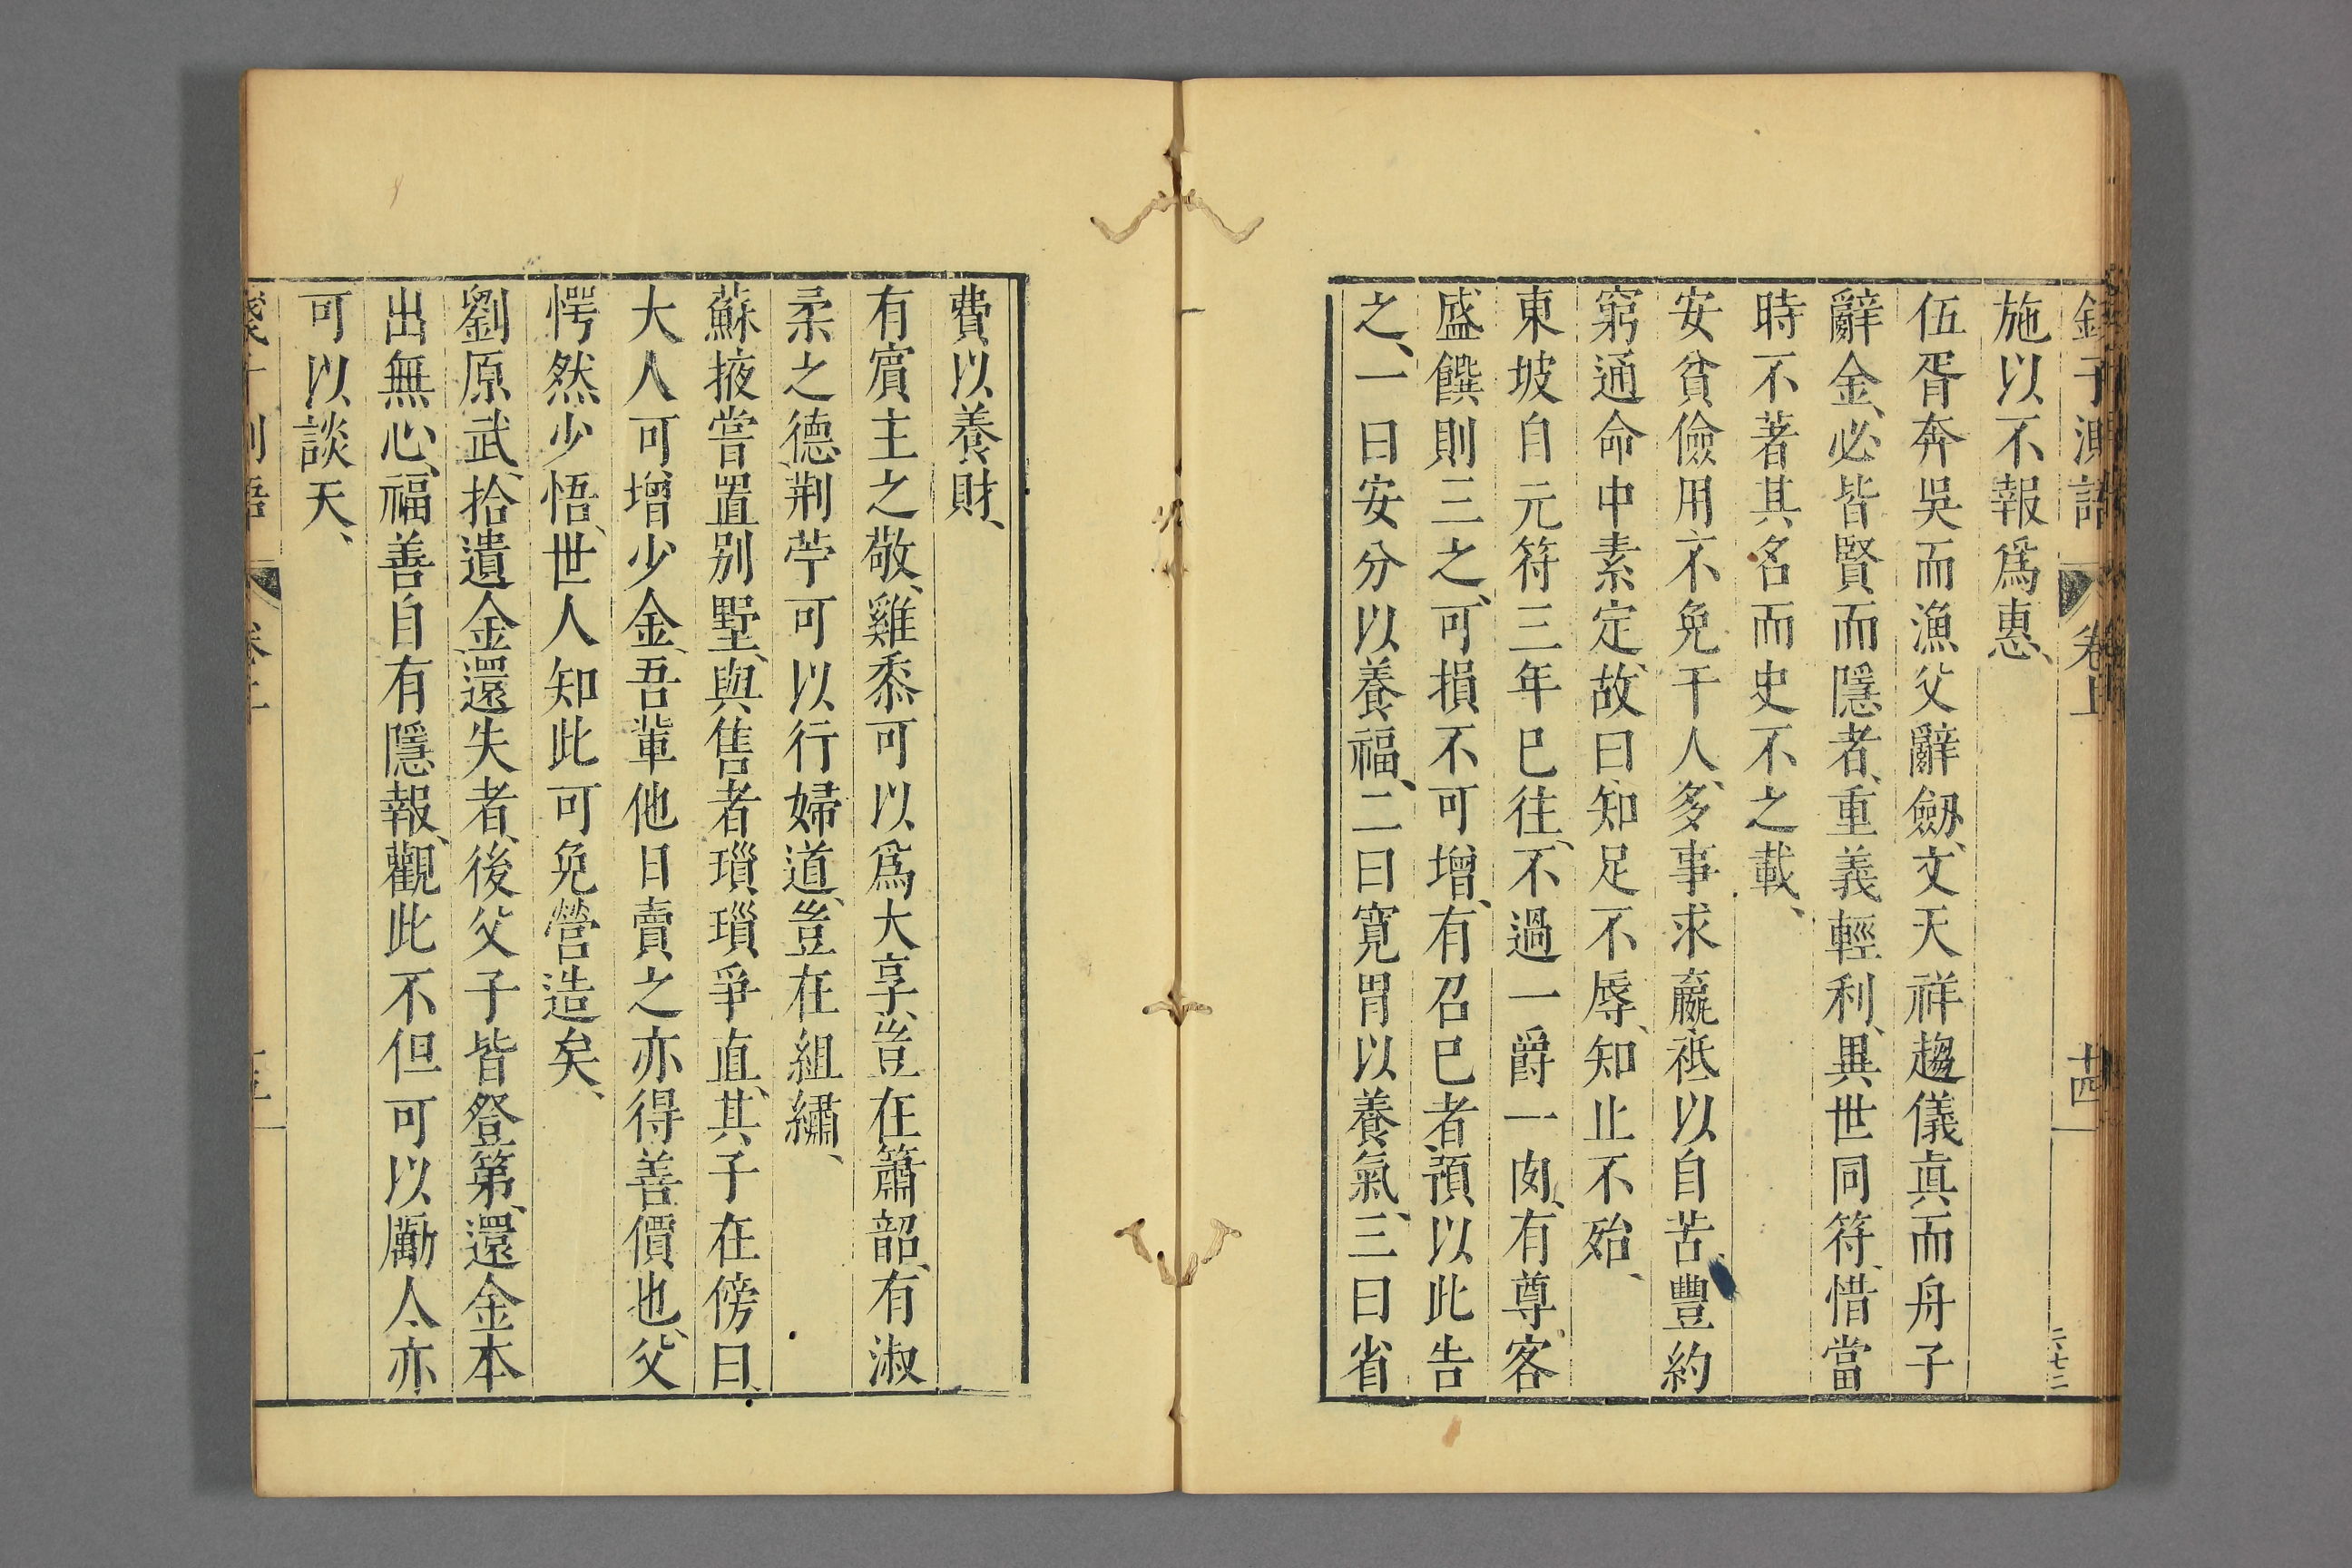 錢子測語 卷上 十四 二七二
施以不報爲惠、
伍胥奔吳而漁父辭劔、文天祥趨儀眞而舟子
辭金、必皆賢而隱者、重義輕利、異世同符、惜當
時不著其名而史不之載、
安貧儉用不免干人、多事求羸秪以自苦、豐約
窮通命中素定、故曰知足不辱、知止不殆、
東坡自元符三年巳往、不過一爵一肉、有尊客
盛饌則三之、可損不可增、有召巳者預以此告
之、一曰安分以養福、二曰寬胃以養氣、三曰省
費以養財、
有賓主之敬、雞黍可以爲大享、豈在簫韶、有淑
柔之德、荆苧可以行婦道、豈在組繡、
蘇掖嘗置别墅、與售者瑣瑣爭直、其子在傍曰、
大人可增少金、吾輩他日賣之亦得善價也、父
愕然少悟、世人知此可免營造矣、
劉原武、拾遺金、還失者、後父子皆登第、還金本
出無心、福善自有隱報、觀此不但可以勵人、亦
可以談天、